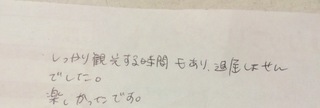 しっかり観光する時間もあり、退屈しません
でした。
楽しかったです。